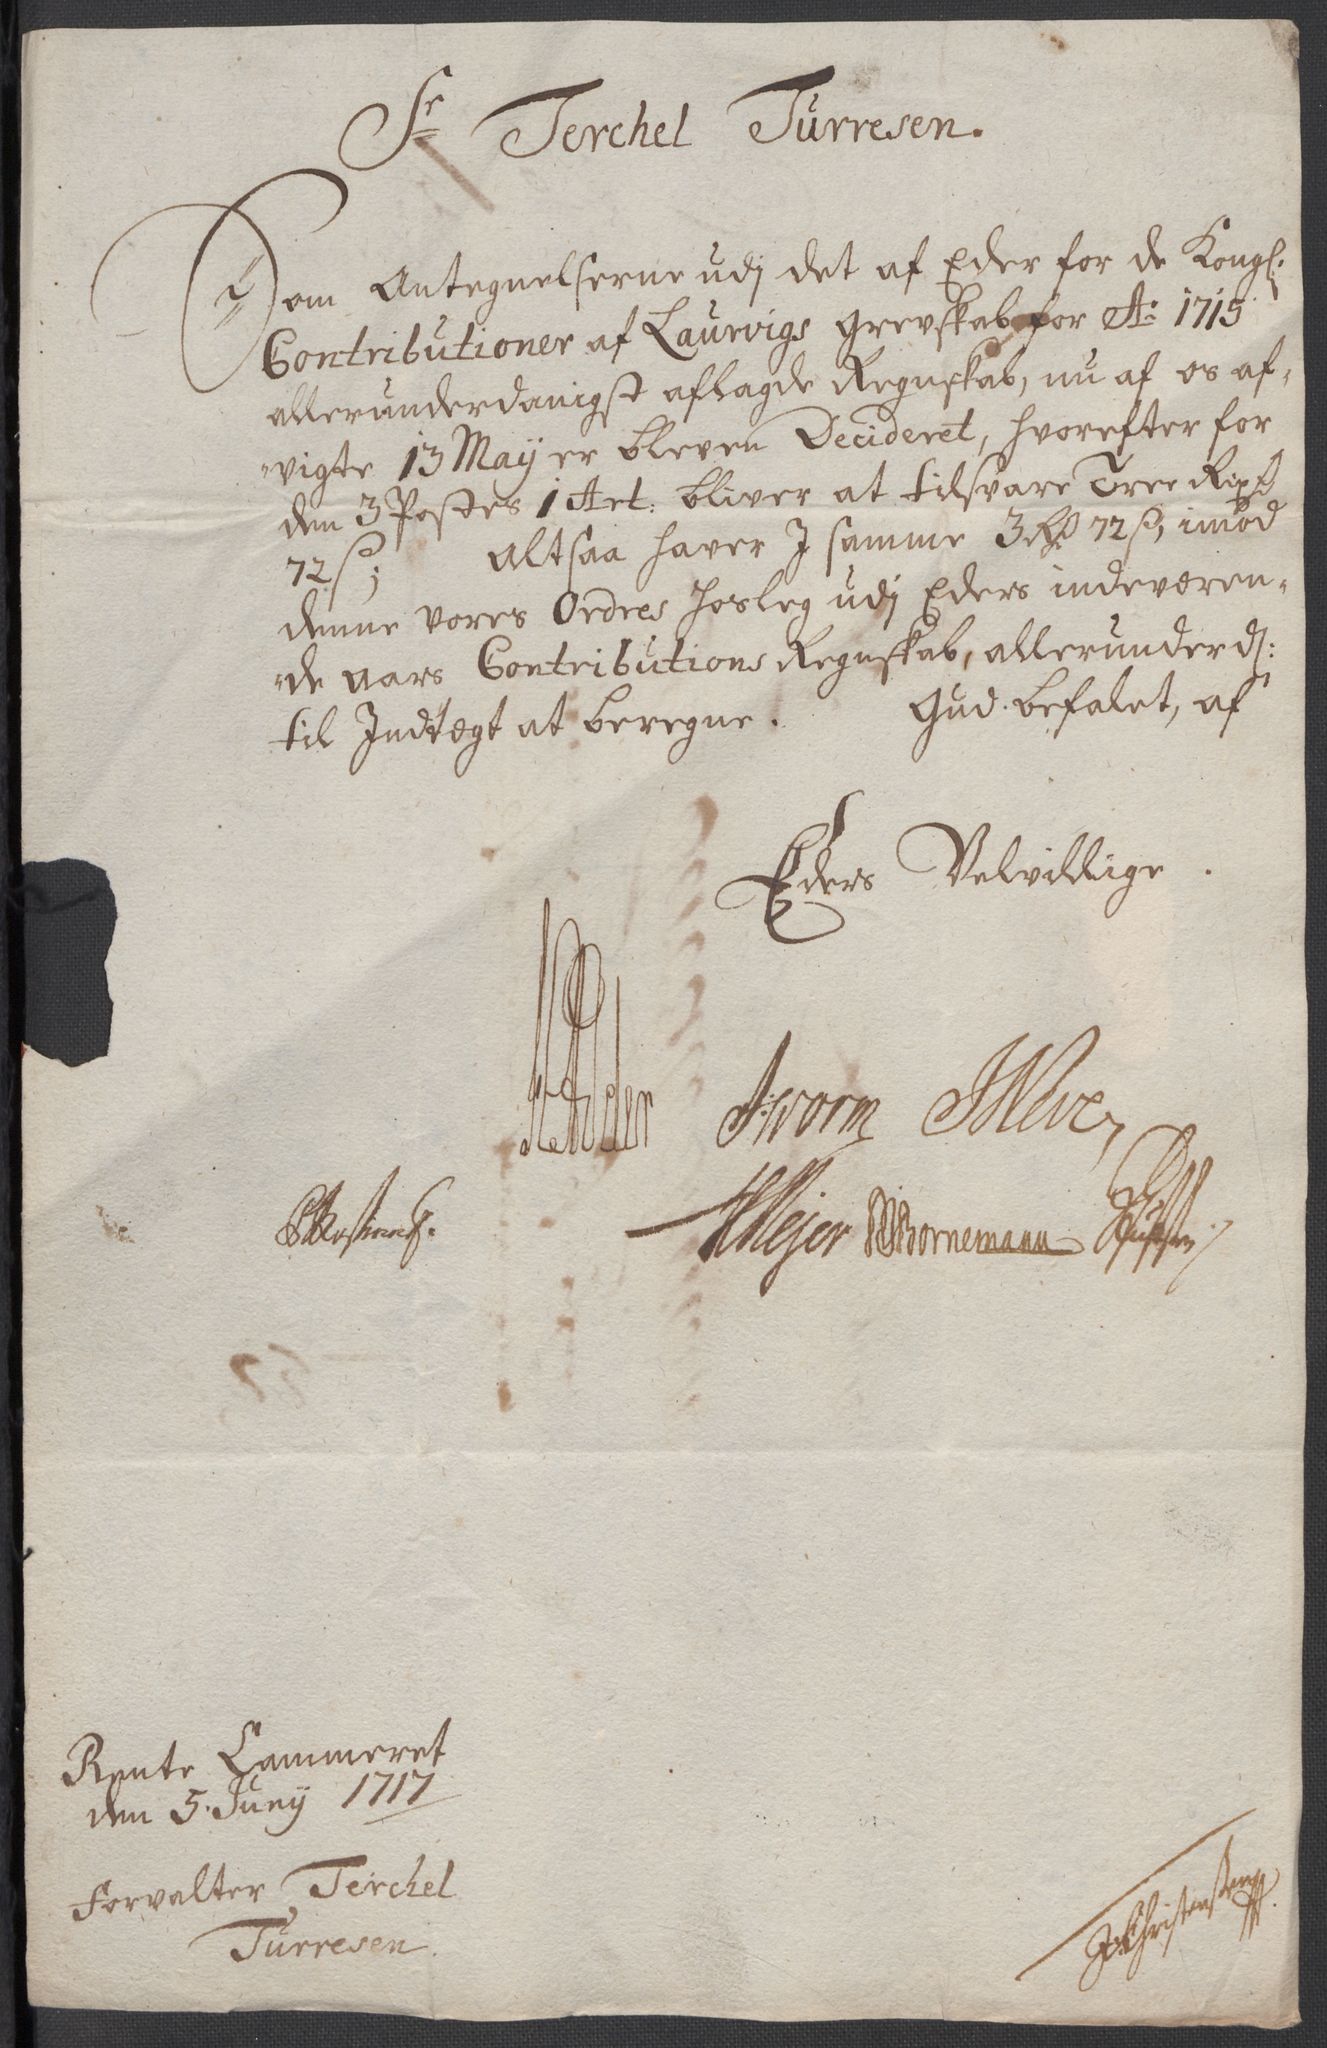 Sr Terchel Türresen.
Som Antegnelserne udj det af Eder for de Kongl:
Contributioner af Laurvigs Grevskab for Ao: 1715
allerunderdanigst aflagde Regnskab, nu af os af-
vigte 13 Maij er bleven Decideret, hvorefter for
dem 3 Postes 1 Art: bliver at tilsvare Tree Rixd
72 ß; Altsaa haver J samme 3 Rd 72 ß, imod
denne vores Ordres hosleg udj Eders indeværen-
de aars Contributions Regnskab, allerunderd:
til Indtægt at beregne. Gud befalet, af
Eders Velvillige.
Worm
Meyer Bornemann
Rente Cammeret
den 5. Junij 1717
Forvalter Terchel
Türresen.
Christensen